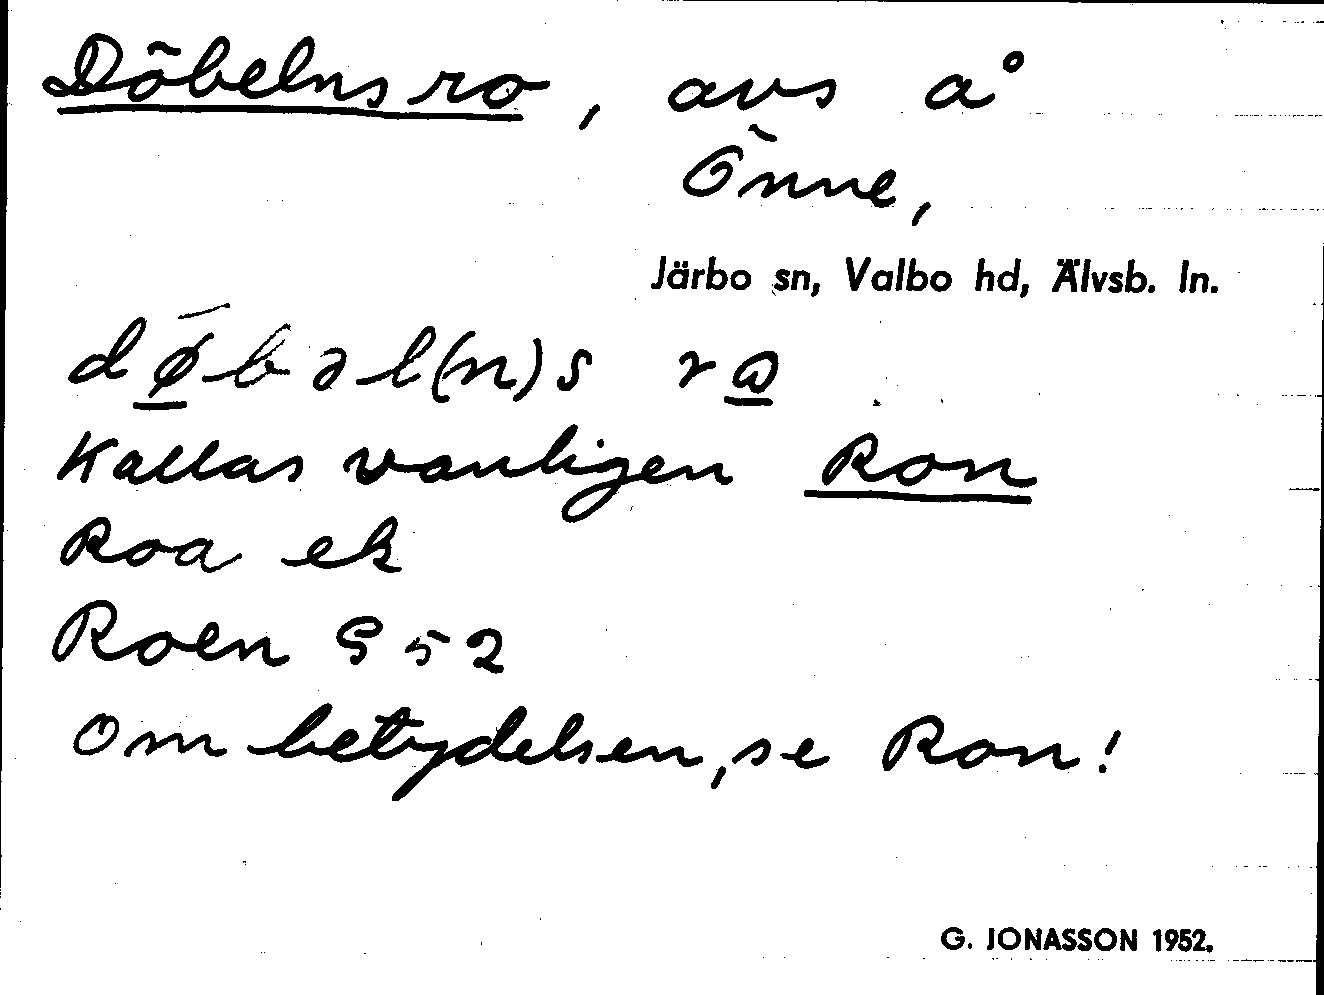 Döbelns ro, avs å
Önne,
Järbo sn, Valbo hd, Älvsb. ln.
dø̄bəl(n)s rɷ
Kallas vanligen Ron
Roa ek
Roen G 52
Om betydelsen, se Ron!
G. JONASSON 1952.